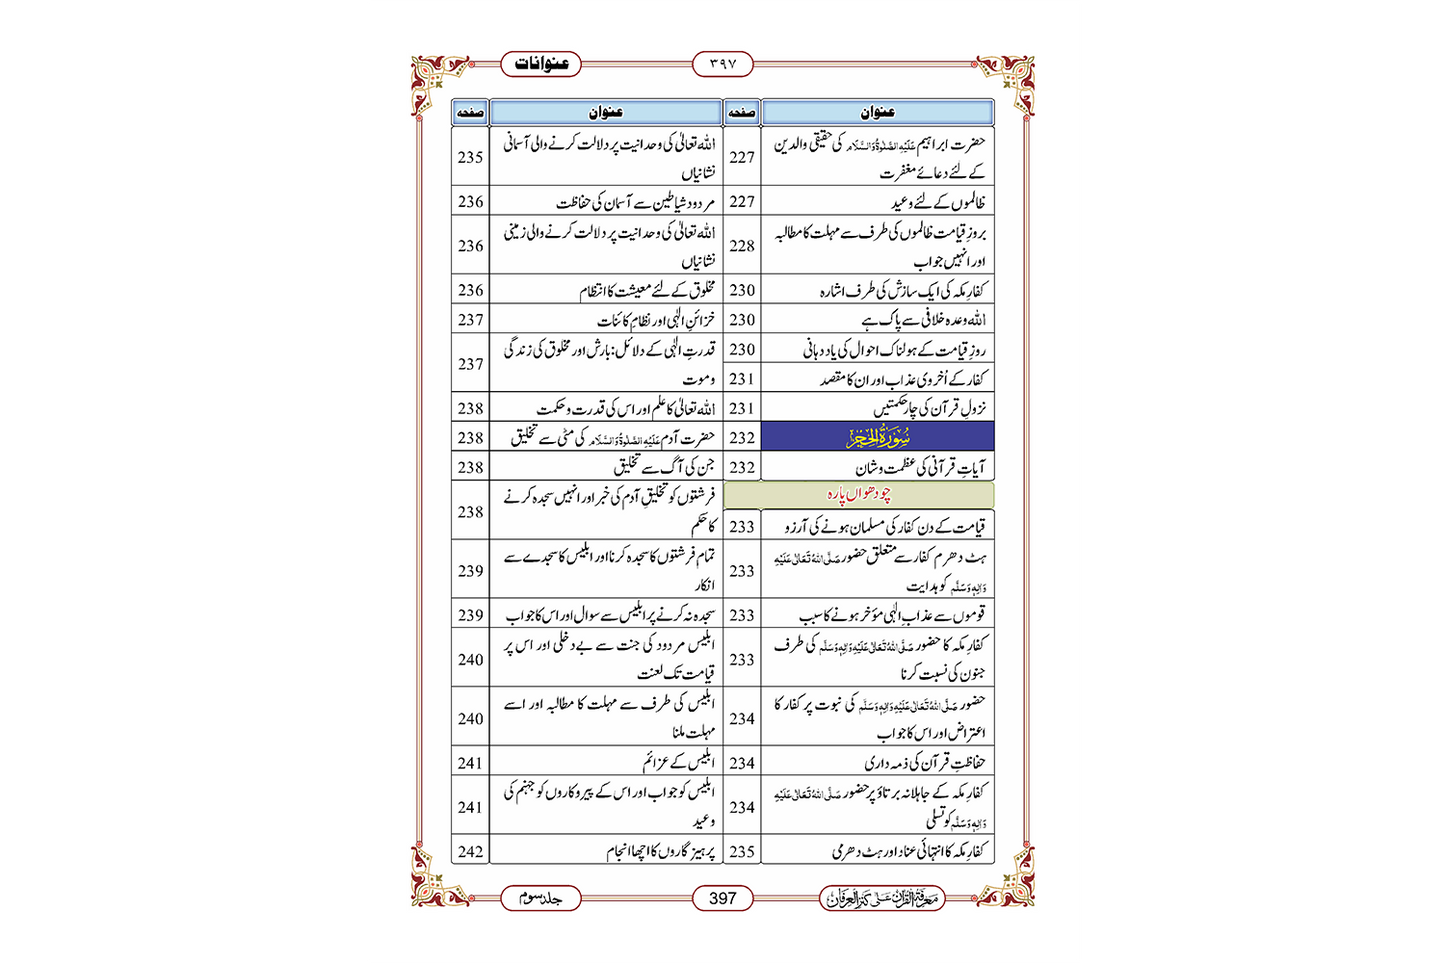 عنوانات
۳۹۷
عنوان
صفحہ
حضرت ابراہیم عَلَیْہِ الصَّلٰوۃُ وَالسَّلَام کی حقیقی والدین
کے لئے دعائے مغفرت
227
ظالموں کے لئے وعید
227
بروزِ قیامت ظالموں کی طرف سے مہلت کا مطالبہ
اور انہیں جواب
228
کفارِ مکہ کی ایک سازش کی طرف اشارہ
230
اللہ وعدہ خلافی سے پاک ہے
230
روزِ قیامت کے ہولناک احوال کی یاد دہانی
230
کفار کے اُخروی عذاب اور ان کا مقصد
231
نزولِ قرآن کی چار حکمتیں
231
سُوْرَۃُ الْحِجْر
232
آیاتِ قرآنی کی عظمت وشان
232
چودھواں پارہ
قیامت کے دن کفار کی مسلمان ہونے کی آرزو
233
ہٹ دھرم کفار سے متعلق حضور صَلَّی اللہُ تَعَالٰی عَلَیْہِ
وَاٰلِہٖ وَسَلَّم کو ہدایت
233
قوموں سے عذابِ الٰہی مؤخر ہونے کا سبب
233
کفارِ مکہ کا حضور صَلَّی اللہُ تَعَالٰی عَلَیْہِ وَاٰلِہٖ وَسَلَّم کی طرف
جنون کی نسبت کرنا
233
حضور صَلَّی اللہُ تَعَالٰی عَلَیْہِ وَاٰلِہٖ وَسَلَّم کی نبوت پر کفار کا
اعتراض اور اس کا جواب
234
حفاظتِ قرآن کی ذمہ داری
234
کفارِ مکہ کے جاہلانہ برتاؤ پر حضور صَلَّی اللہُ تَعَالٰی عَلَیْہِ
وَاٰلِہٖ وَسَلَّم کو تسلی
234
کفارِ مکہ کا انتہائی عناد اور ہٹ دھرمی
235
عنوان
صفحہ
اللہ تعالیٰ کی وحدانیت پر دلالت کرنے والی آسمانی
نشانیاں
235
مردود شیاطین سے آسمان کی حفاظت
236
اللہ تعالیٰ کی وحدانیت پر دلالت کرنے والی زمینی
نشانیاں
236
مخلوق کے لئے معیشت کا انتظام
236
خزائنِ الٰہی اور نظامِ کائنات
237
قدرتِ الٰہی کے دلائل: بارش اور مخلوق کی زندگی
وموت
237
اللہ تعالیٰ کا علم اور اس کی قدرت وحکمت
238
حضرت آدم عَلَیْہِ الصَّلٰوۃُ وَالسَّلَام کی مٹی سے تخلیق
238
جن کی آگ سے تخلیق
238
فرشتوں کو تخلیقِ آدم کی خبر اور انہیں سجدہ کرنے
کا حکم
238
تمام فرشتوں کا سجدہ کرنا اور ابلیس کا سجدے سے
انکار
239
سجدہ نہ کرنے پر ابلیس سے سوال اور اس کا جواب
239
ابلیس مردود کی جنت سے بے دخلی اور اس پر
قیامت تک لعنت
240
ابلیس کی طرف سے مہلت کا مطالبہ اور اسے
مہلت ملنا
240
ابلیس کے عزائم
241
ابلیس کو جواب اور اس کے پیروکاروں کو جہنم کی
وعید
241
پرہیزگاروں کا اچھا انجام
242
معرفۃ القرآن علی کنز العرفان
397
جلد سوم